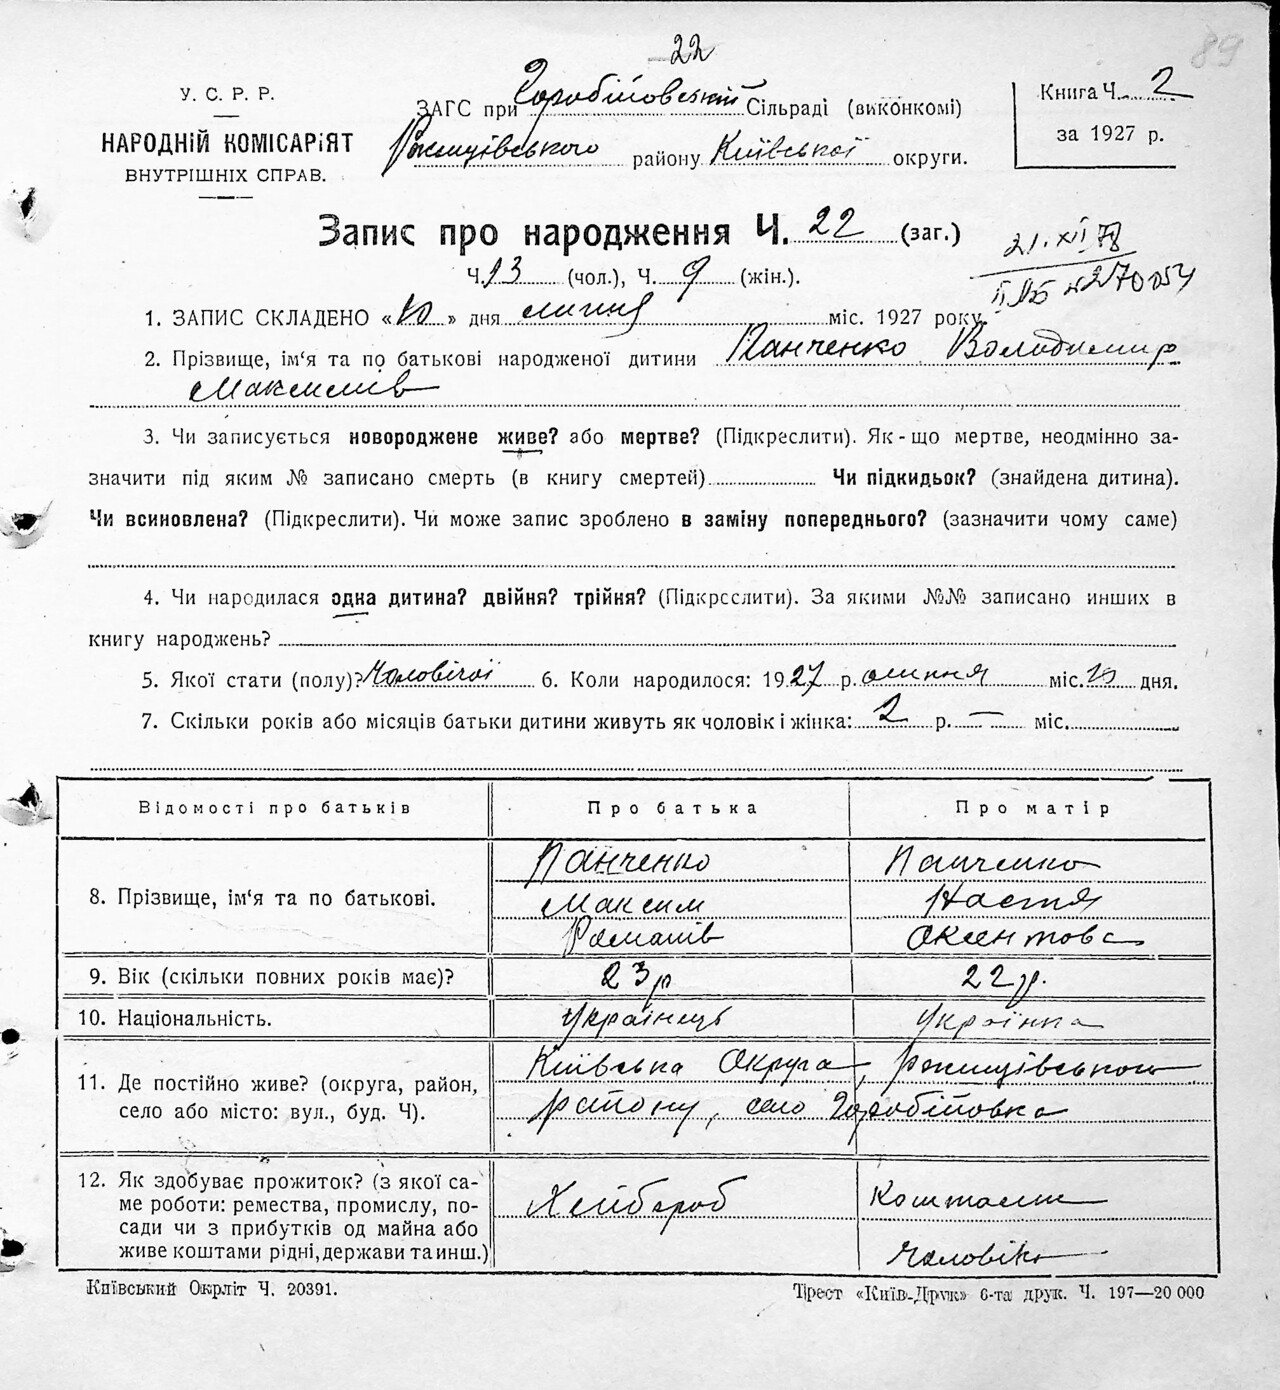 22
89
У. С. Р. Р.
НАРОДНІЙ КОМІСАРІЯТ
ВНУТРІШНІХ СПРАВ.
ЗАГС при Горобіївській Сільраді (виконкомі)
району Київської округи.
Книга Ч. 2
за 1927 р.
Запис про народження Ч. 22 (заг.)
Ч. 13 (чол.), Ч. 9 (жін.).
21.XII 78
270054
1. ЗАПИС СКЛАДЕНО « » дня липня міс. 1927 року.
2. Прізвище, ім'я та по батькові народженої дитини Панченко Володимир
Максимів
3. Чи записується новороджене живе? або мертве? (Підкреслити). Як-що мертве, неодмінно за-
значити під яким № записано смерть (в книгу смертей) Чи підкидьок? (знайдена дитина).
Чи всиновлена? (Підкреслити). Чи може запис зроблено в заміну попереднього? (зазначити чому саме)
4. Чи народилася одна дитина? двійня? трійня? (Підкреслити). За якими №№ записано инших в
книгу народжень?
5. Якої стати (полу)? Чоловічої 6. Коли народилося: 1927 р. липня міс. дня.
7. Скільки років або місяців батьки дитини живуть як чоловік і жінка: 2 р. — міс.
Відомості про батьків Про батька Про матір
8. Прізвище, ім'я та по батькові.
Панченко Панченко
Максим Настя
Романів
9. Вік (скільки повних років має)? 23 р 22 р.
10. Національність. Українець Українка
11. Де постійно живе? (округа, район,
село або місто: вул., буд. Ч).
Київська Округа,
району, село Горобіївка
12. Як здобуває прожиток? (з якої са-
ме роботи: ремества, промислу, по-
сади чи з прибутків од майна або
живе коштами рідні, держави та инш.)
Хлібороб Коштами
чоловіка
Київський Окрліт Ч. 20391.
Трест «Київ-Друк» 6-та друк. Ч. 197—20 000